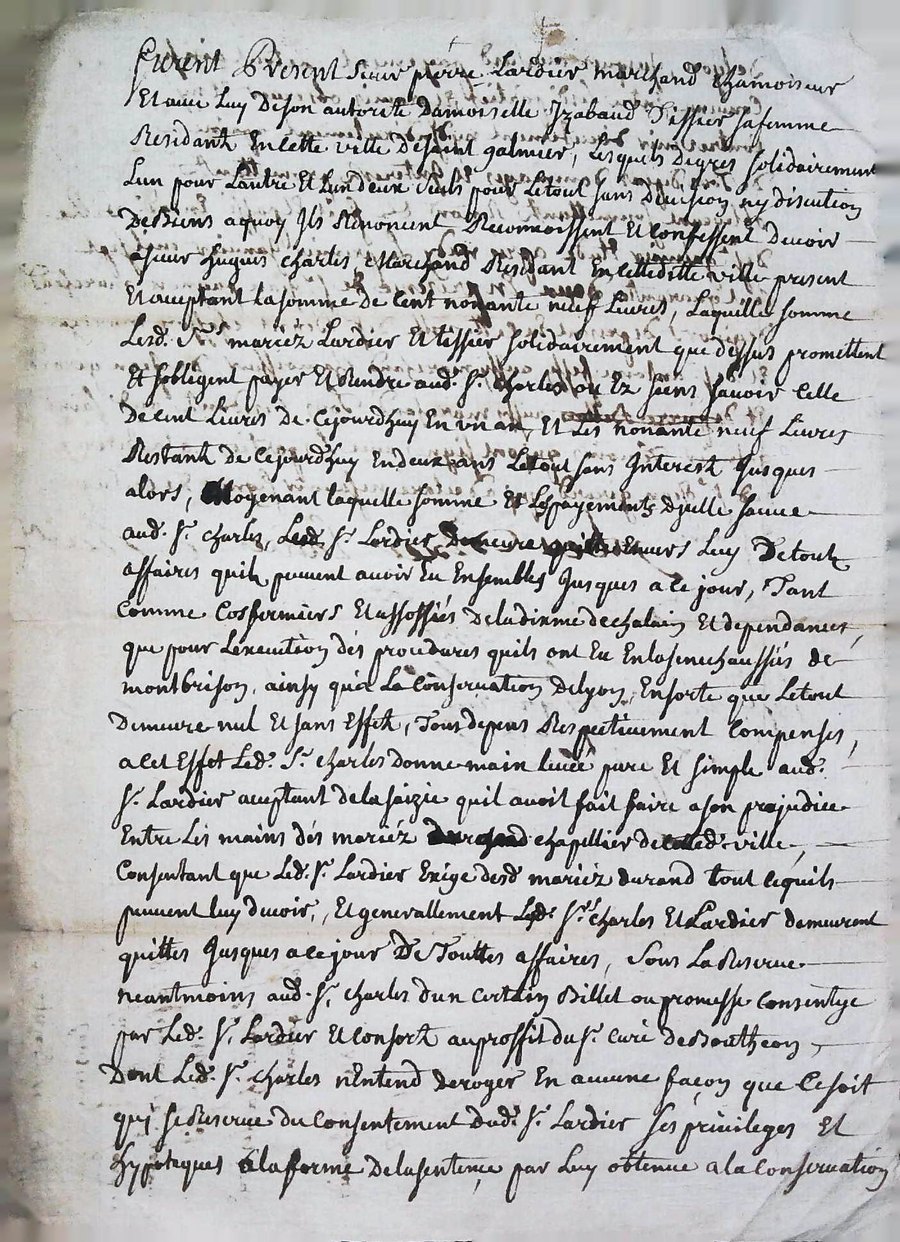 furent Present Sieur pierre Lardier marchand chamoiseur
Et avec Luy De son autorité Damoiselle Izabaud Tissier sa femme
Residant En cette ville De saint galmier, Lesquels De gres solidairement
Lun pour Lautre Et Lun deux seuls pour Le tout sans Division ny discution
De Biens a quoy Ils Renoncent Reconnoissent Et confessent Devoir
a sieur hugues charles Marchand Resident En cette ditte ville present
Et acceptant La somme de Cent nonante neuf Livres, Laquelle somme
Lesd. Srs mariéz Lardier Et tissier solidairement que dessus promettent
Et soblegent payer Et Rendre aud. Sr. charles ou Ez siens savoir Celle
De cent Livres de Cejourdhuy En un an Et Les nonante neuf Livres
Restant de cejourdhuy En deux ans Le tout sans Interest Jusques
alors, Moyenant laquelle somme Et Le payement dJcelle sauve
aud. Sr. charles, Led. Sr. Lardier Demeure quitte Envers Luy De tout
affaires quils peuvent avoir Eu Ensembles Jusques a ce jour, Tant
Comme Cosfermiers Et assossiés De la dixme de chalain Et dependances,
que pour Lexecution dés procédures quils ont Eu En la senechaussées de
montbrison, ainsy qua La Conservation De lyon, En sorte que Le tout
Demeure nul Et sans Effet, Tous depens Respectivement Compensés,
a cet Effet Led. Sr. charles donne main levée pure Et simple aud.
Sr. Lardier acceptant de la saizie quil avoit fait faire a son prejudice
Entre Les mains dés mariéz Durand chapellier de Lad. ville,
Consentant que Led. Sr. Lardier Exige desd mariéz durand tout ce quils
peuvent luy devoir, Et generallement Lesd. Srs charles Et Lardier demeurent
quittes Jusques a ce jour De Touttes affaires, Sous La Reserve
neantmoins aud. Sr. charles dun Certain Billet ou promesse Consentye
par Led. Sr. Lardier Et Consort au proffit du Sr. Curé De Boutheon,
Dont Led. Sr. charles nEntend deroger En aucune façon que Ce soit
quy se Reserve du Consentement dud. Sr. Lardier Ses privileges Et
hypoteques a la forme De la sentence par Luy obtenue a la Conservation